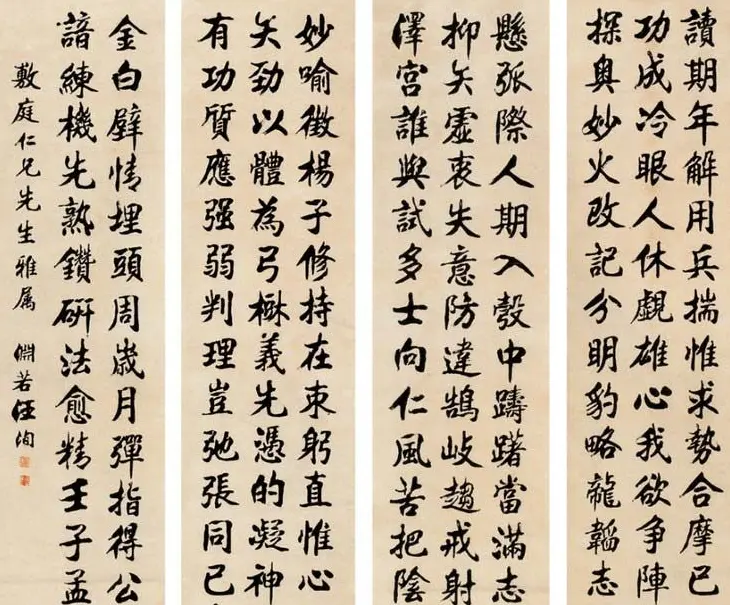 讀期年解用兵揣惟求勢合摩已
功成冷眼人休覷雄心我欲争陣
探奥妙火改記分明豹略龍韜志
懸弧際人期入彀中躊躇當滿志
抑矢虚衷失意防違鵠岐趨戒射
澤宫誰與試多士向仁風苦把陰
妙喻徵楊子修持在束躬直惟心
矢勁以體為弓楙義先憑的凝神
有功質應强弱判理豈弛張同已
金白璧情埋頭周歲月彈指得公
諳練機先熟鑽研法愈精壬子孟
敷庭仁兄先生雅属 淵若汪洵